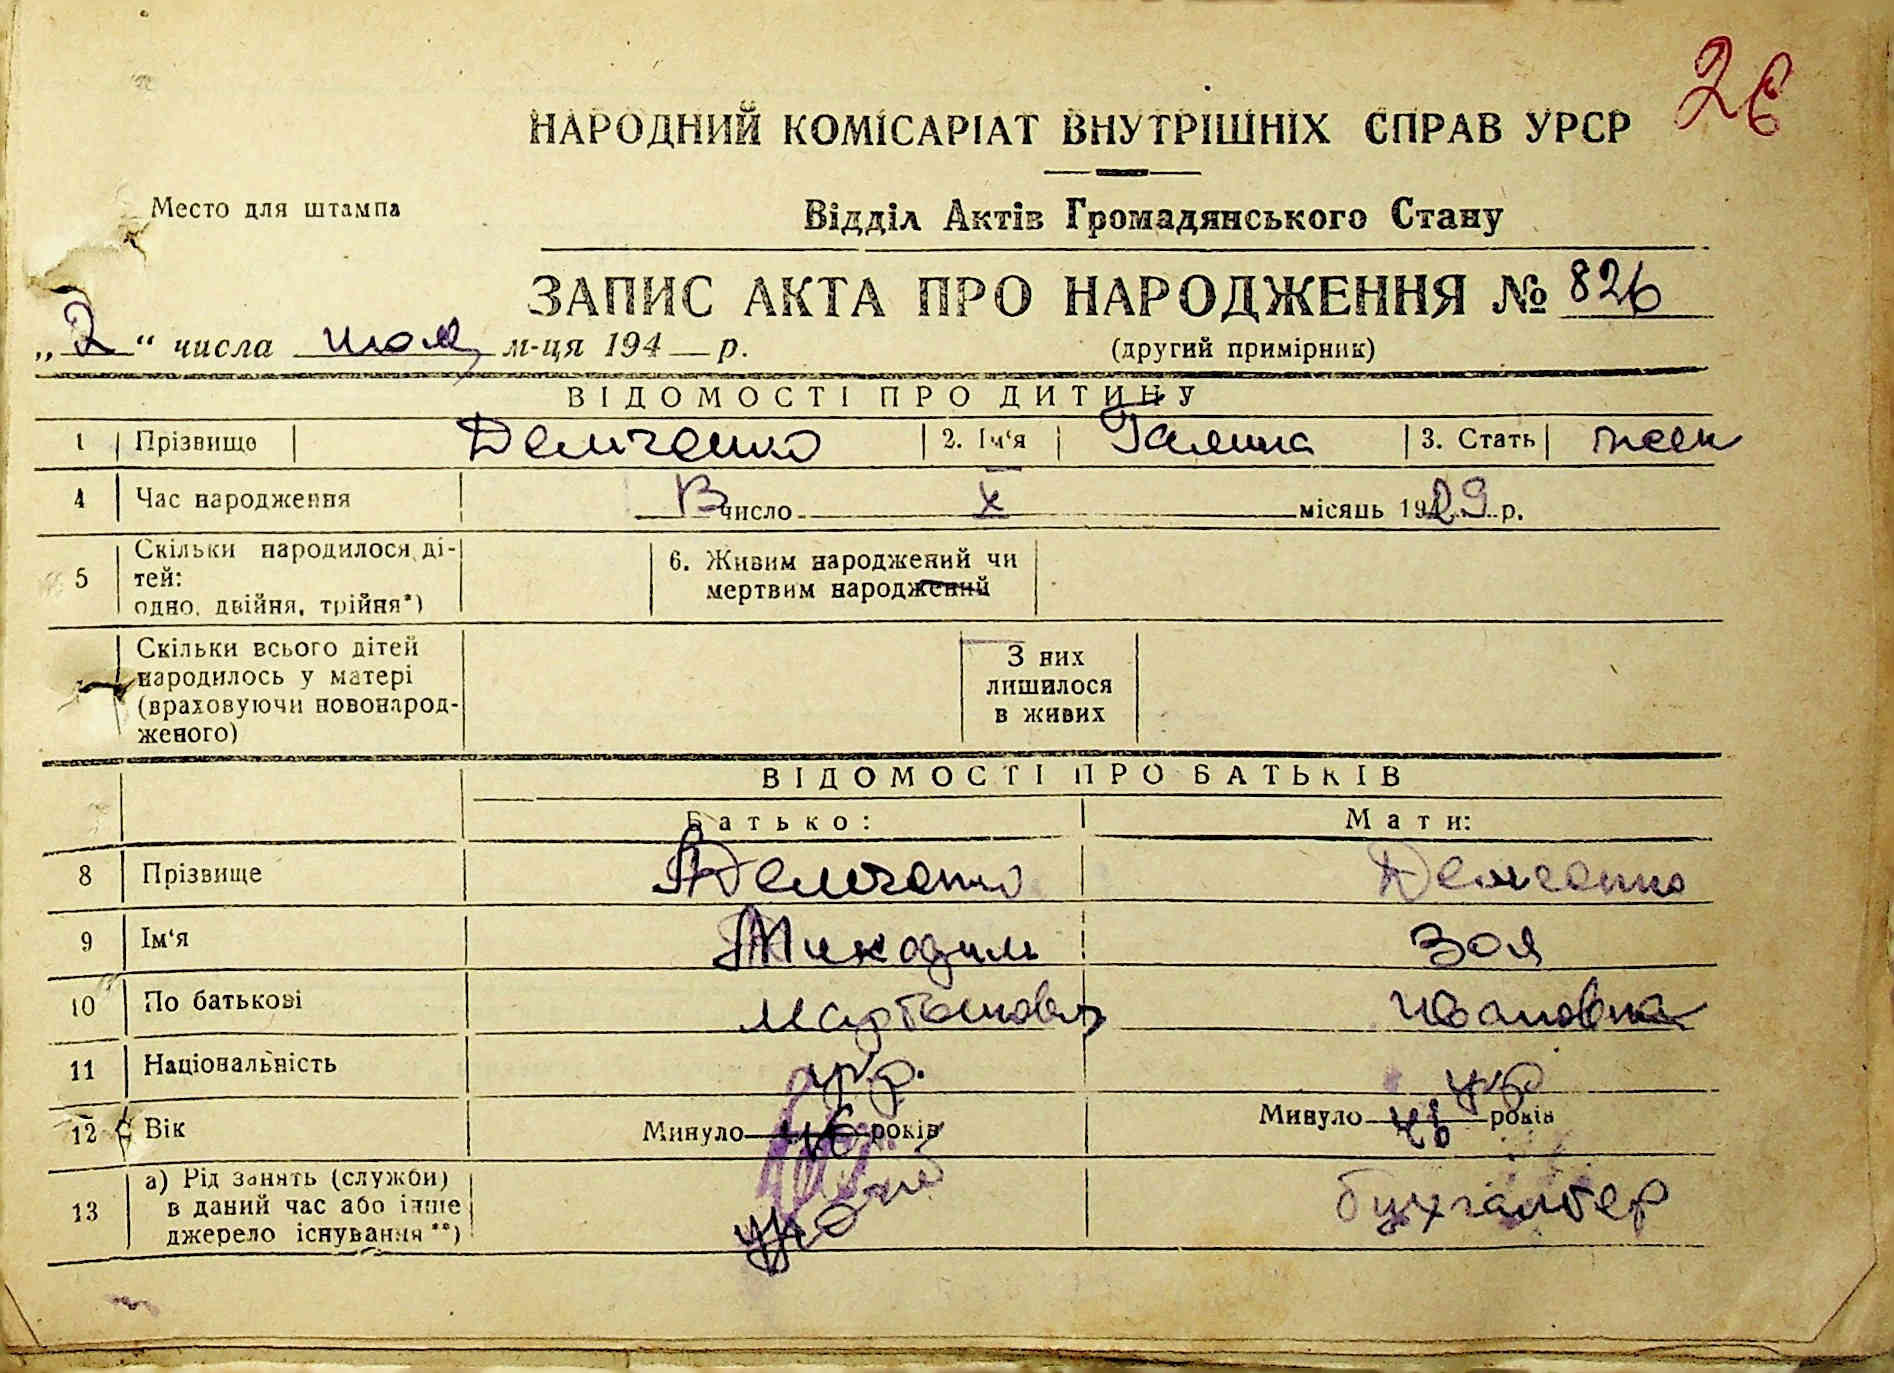 26
НАРОДНИЙ КОМІСАРІАТ ВНУТРІШНІХ СПРАВ УРСР
Место для штампа
Відділ Актів Громадянського Стану
ЗАПИС АКТА ПРО НАРОДЖЕННЯ № 826
„2“ числа июля м-ця 194 р.
(другий примірник)
ВІДОМОСТІ ПРО ДИТИНУ
1 Прізвище Демченко 2. Ім‘я Галина 3. Стать жен
4 Час народження 13 число X місяць 1929 р.
5 Скільки народилося ді-
тей:
одно, двійня, трійня*)
6. Живим народжений чи
мертвим народжений
Скільки всього дітей
народилось у матері
(враховуючи новонарод-
женого)
З них
лишилося
в живих
ВІДОМОСТІ ПРО БАТЬКІВ
Батько: Мати:
8 Прізвище Демченко Демченко
9 Ім‘я Никодим Зоя
10 По батькові Мартынович Ивановна
11 Національність укр. укр
12 Вік Минуло 46 років Минуло років
13 а) Рід занять (служби)
в даний час або інше
джерело існування**)
бухгалтер